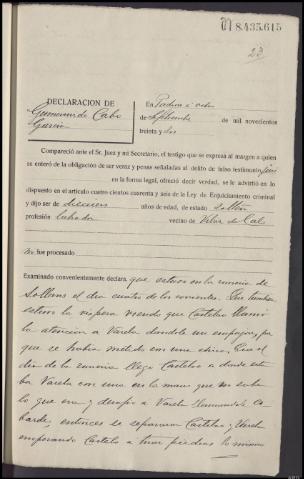 8.435.615
23
DECLARACION DE
Gumersindo Cabo
García
En Padrón a ocho
de Septiembre de mil novecientos
treinta y dos
Compareció ante el Sr. Juez y mi Secretario, el testigo que se expresa al margen a quien
se enteró de la obligación de ser veraz y penas señaladas al delito de falso testimonio
en la forma legal, ofreció decir verdad, se le advirtió en lo
dispuesto en el artículo cuatro cientos cuarenta y seis de la Ley de Enjuiciamiento criminal
y dijo ser de años de edad, de estado soltero
profesión labrador vecino de Vilar de Cal
No fue procesado
Examinado convenientemente declara, que estuvo en la romería de
el día cuatro de los corrientes. Que
la víspera viendo que Castelao llamó
la atención a Varela dandole un empujon, por
que se había metido con una chica. Que el
día de la romería llegó Castelao a donde esta
ba Varela con una en la mano que no sabe
lo que era y a Varela llamandole co-
barde, entonces se separaron Castelao y Varela
empezando Castelao a tirar piedras lo mismo